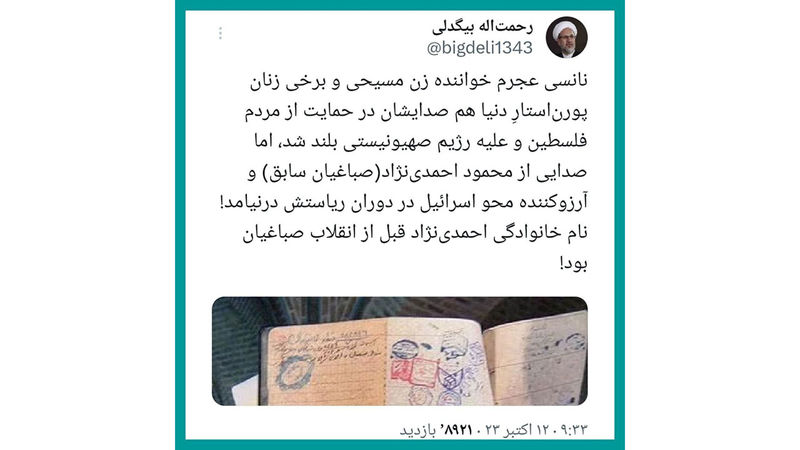 رحمت‌اله بیگدلی
@bigdeli1343
نانسی عجرم خواننده زن مسیحی و برخی زنان
پورن‌استارِ دنیا هم صدایشان در حمایت از مردم
فلسطین و علیه رژیم صهیونیستی بلند شد، اما
صدایی از محمود احمدی‌نژاد(صباغیان سابق) و
آرزوکننده محو اسرائیل در دوران ریاستش درنیامد!
نام خانوادگی احمدی‌نژاد قبل از انقلاب صباغیان
بود!
۹:۳۳ · ۱۲ اکتبر ۲۳ · ۸۹۲۱٬ بازدید